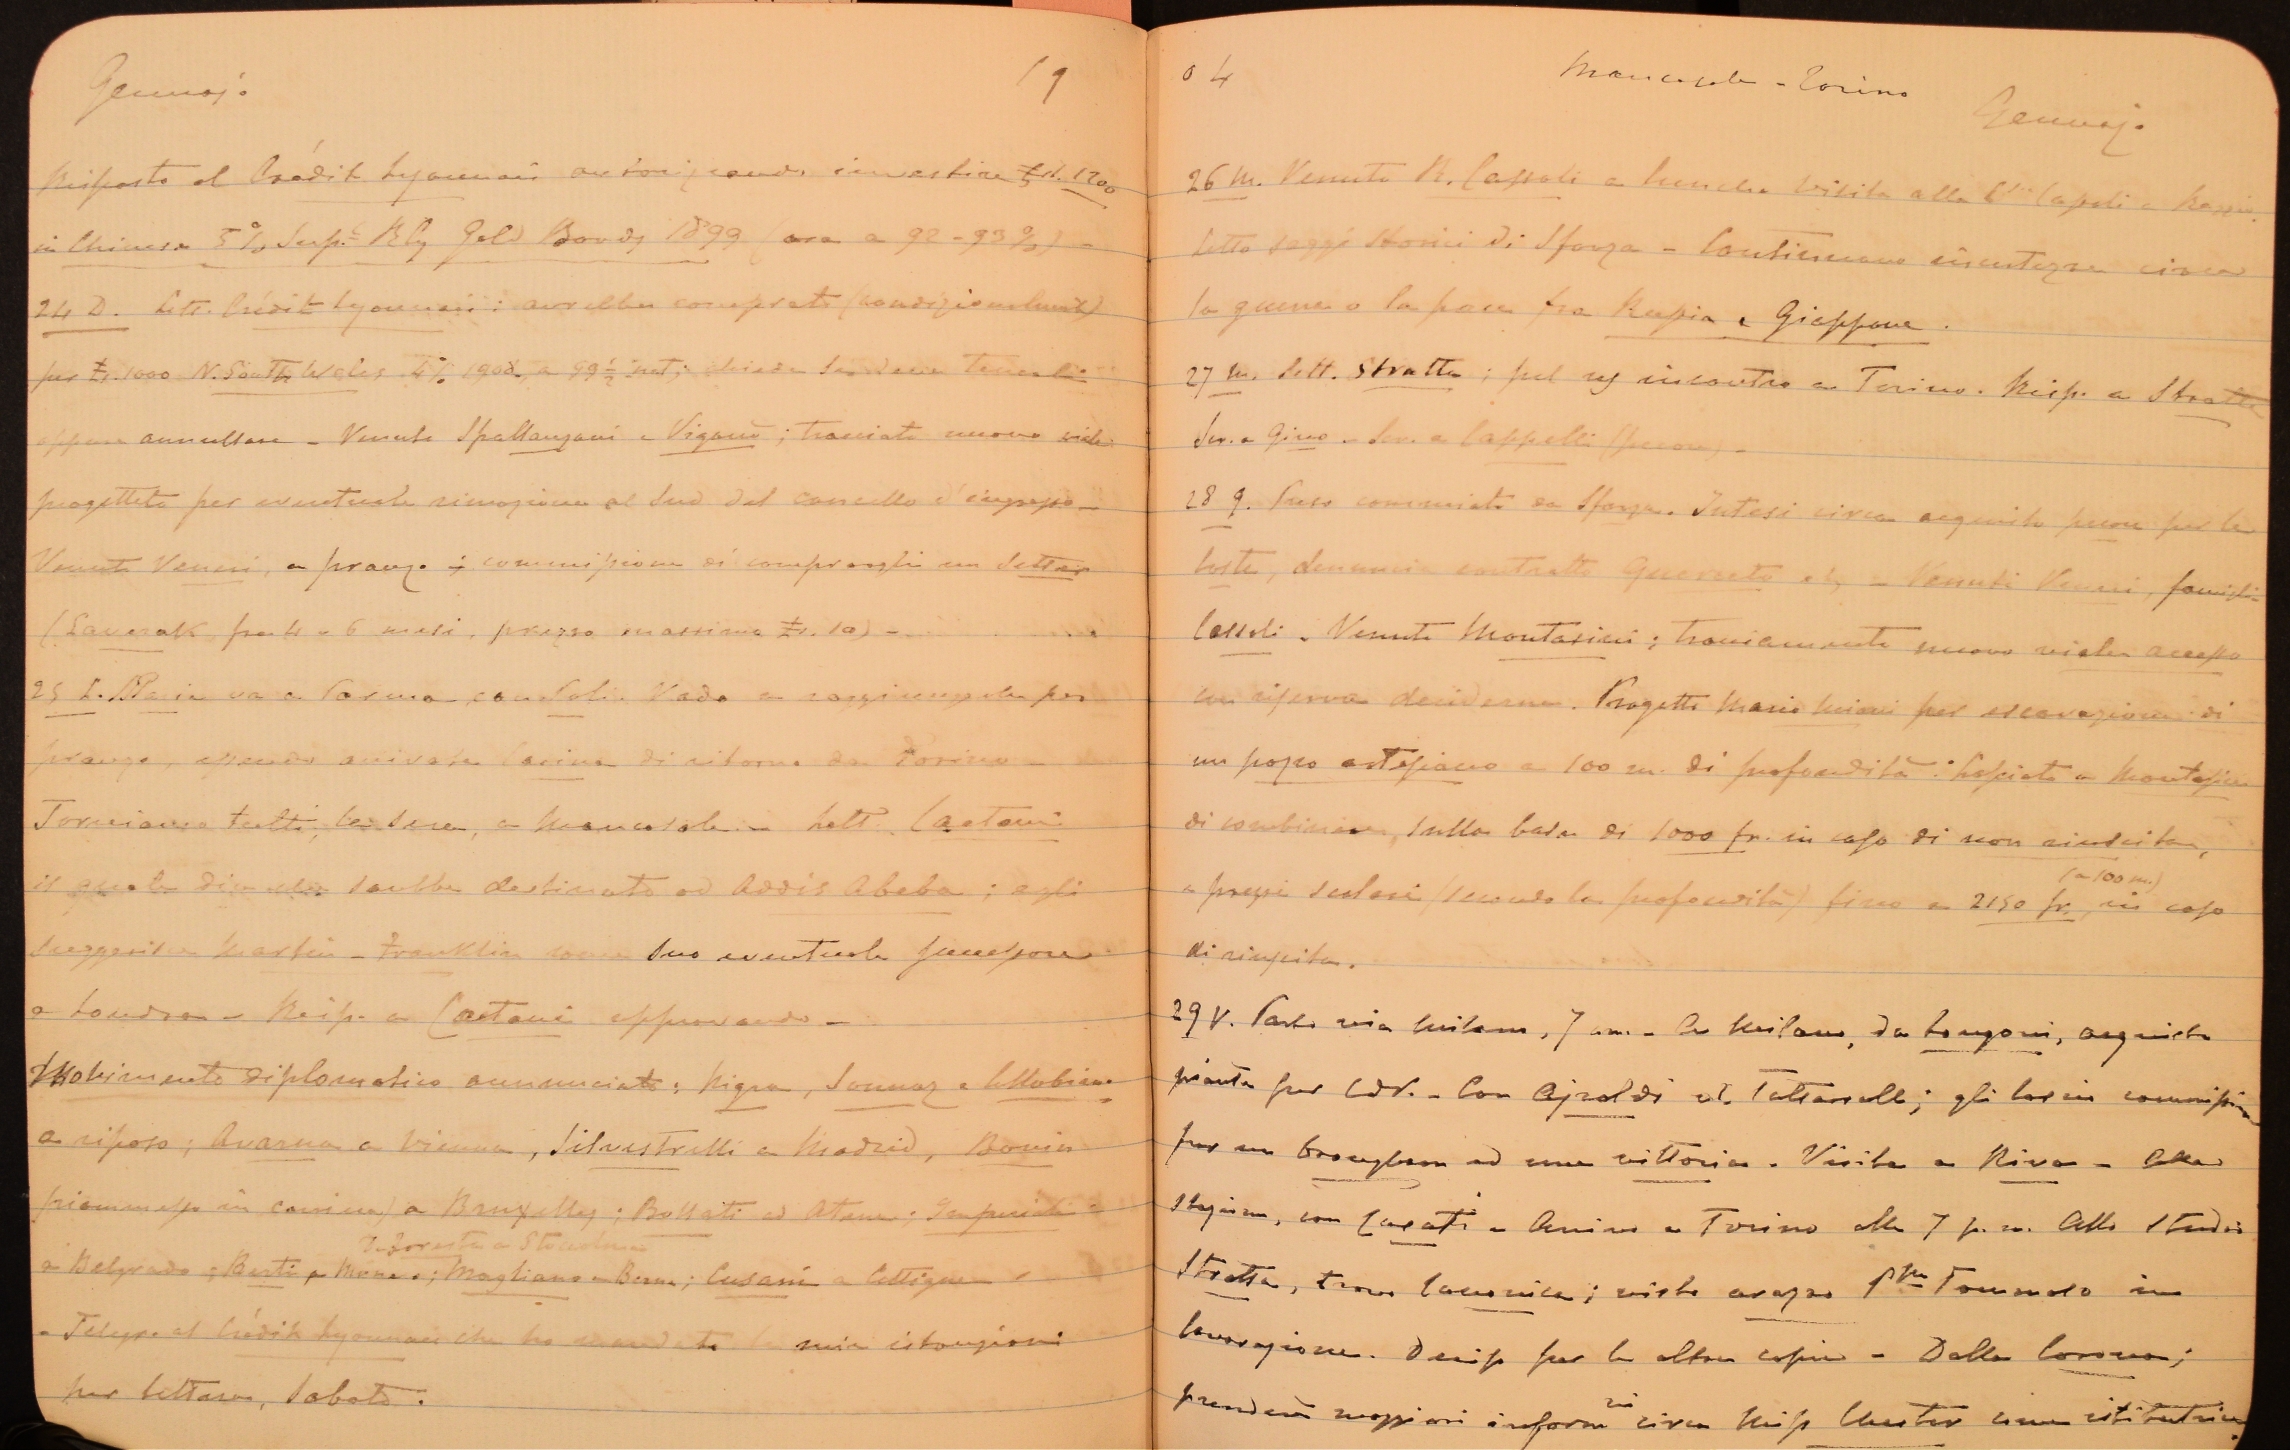 Gennajo 19
Risposto al Crédit Lyonnais autorizzando investire £st. 1200
in Chinese 5% Imp. Rly Gold Bonds 1899 (ora a 92-93%) -
24 D. Lett. Crédit Lyonnais: avrebbe comprato (condizionalmente)
per £. 1000 N. South Wales 4% a 99 ½ net; chiede se deve tenerli
oppure annullare - Venuto Spallanzani e Viganò; tracciato nuovo viale
progettato per eventuale rimozione al Sud del cancello d'ingresso -
Venuto Veneri, a pranzo; commissione di comprargli un Setter
(Laverak fra 4 e 6 mesi, prezzo massimo £. 10) -
25 L. Maria va a Parma con Vado a raggiungerla per
pranzo, essendo arrivata Carina di ritorno da Torino -
Torniamo tutti, la sera, a Mancasale - Lett. Caetani
il quale dice sarebbe destinato ad Addis Abeba; egli
suggerisce Martin-Franklin come suo eventuale successore
a Londra - Risp. a Caetani approvando -
Movimento diplomatico annunciato: Nigra, Sonnaz e Collobiano
a riposo; Avarna a Vienna, Silvestrelli a Madrid, Bonin
(riammesso in carriera) a Bruxelles; Bollati ad Atene; Imperiali
De Foresta a Stocolma
a Belgrado; Berti a Monaco; Magliano a Berna; Cusani a Cettigne -
- Telegr. al Crédit Lyonnais che ho mandato le mie istruzioni
per lettera, Sabato.
04 Mancasale - Torino
Gennajo
26 M. Venuto R. Cassoli a lunch visita alla Capeli a Reggio.
Letto saggi storici di Sforza - Continuano incertezze circa
la guerra o la pace fra Russia e Giappone.
27 M. Lett. Stratta; pel 29 incontro a Torino. Risp. a Stratta
Scr. a Gino - Scr. a Cappelli (pecore) -
28 G. Preso commiato da Sforza. Intesi circa acquisto pecore per le
Coste, denuncia contratto Querceto etc - Venuti Veneri, famiglia
Cassoli - Venuto Montasini; tracciamento nuovo viale accesso
con riserva deciderne. Progetto Mario per escavazione di
un pozzo artesiano a 100 m. di profondità: lasciato a Montasini
di combinare, sulla base di 1000 fr. in caso di non riuscita,
(a 100 m.)
e prezzi scalari (secondo la profondità) fino a 2150 fr. in caso
di riuscita.
29 V. Parto via Milano, 7 am. - A Milano, da Longoni, acquisto
piante per CdV. - Con Ajroldi al Tattersall; gli lascio commissione
per un brougham ed una vittoria. Visita a Riva - Alla
stazione, con Casati - Arrivo a Torino alle 7 p.m. Allo studio
Stratta, trovo Canonica; visto Tommaso in
lavorazione. per le altre copie - Dalla Corona;
prenderà maggiori inform.ni circa Miss Chester come istitutrice.